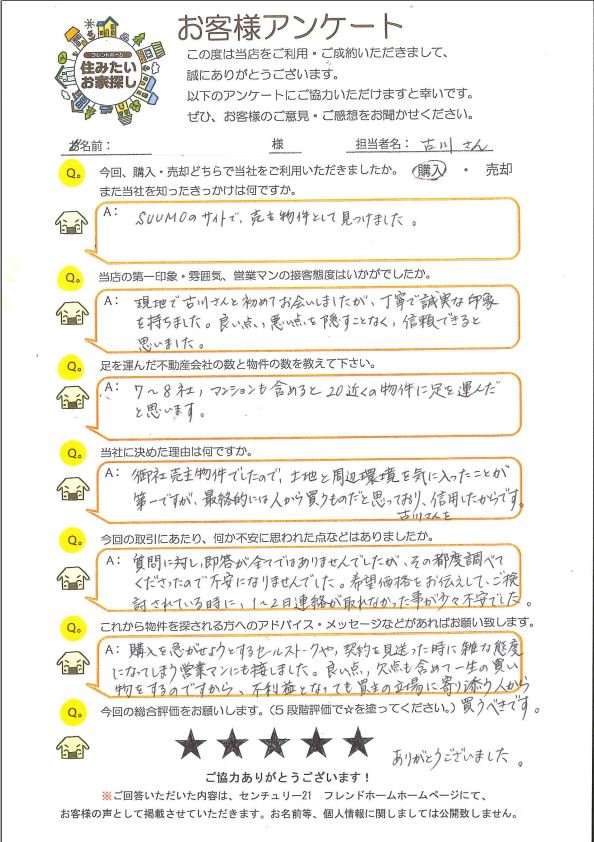 お客様アンケート
フレンドホーム
住みたい
お家探し
この度は当店をご利用・ご成約いただきまして、
誠にありがとうございます。
以下のアンケートにご協力いただけますと幸いです。
ぜひ、お客様のご意見・ご感想をお聞かせください。
お名前： 様 担当者名：古川さん
Q。 今回、購入・売却どちらで当社をご利用いただきましたか。 購入 ・ 売却
また当社を知ったきっかけは何ですか。
A： SUUMOのサイトで、売主物件として見つけました。
Q。 当店の第一印象・雰囲気、営業マンの接客態度はいかがでしたか。
A： 現地で古川さんと初めてお会いしましたが、丁寧で誠実な印象
を持ちました。良い点、悪い点を隠すことなく、信頼できると
思いました。
Q。 足を運んだ不動産会社の数と物件の数を教えて下さい。
A： 7～8社，マンションも含めると20近くの物件に足を運んだ
と思います。
Q。 当社に決めた理由は何ですか。
A： 御社売主物件でしたので、土地と周辺環境を気に入ったことが
第一ですが、最終的には人から買うものだと思っており、信用したからです。
古川さんを
Q。 今回の取引にあたり、何か不安に思われた点などはありましたか。
A： 質問に対し、即答が全てではありませんでしたが、その都度調べて
くださったので不安になりませんでした。希望価格をお伝えして、ご検
討されている時に、1～2日連絡が取れなかった事が少々不安でした。
Q。 これから物件を探される方へのアドバイス・メッセージなどがあればお願い致します。
A： 購入を急がせようとするセールストークや、契約を見送った時に雑な態度
になってしまう営業マンにも接しました。良い点、欠点も含めて一生の買い
物をするのですから、不利益となっても買主の立場に寄り添う人から
買うべきです。
Q。 今回の総合評価をお願いします。（5段階評価で☆を塗ってください。）
★★★★★
ありがとうございました。
ご協力ありがとうございます！
※ご回答いただいた内容は、センチュリー21 フレンドホームホームページにて、
お客様の声として掲載させていただきます。お名前等、個人情報に関しましては公開致しません。